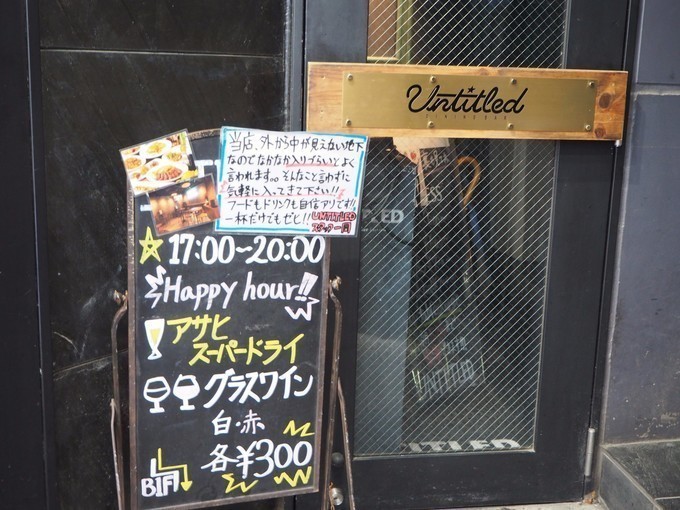 Untitled
当店、外から中が見えない地下
なのでなかなか入りづらいとよく
言われます。。そんなこと言わずに
気軽に入ってきて下さい!!
フードもドリンクも自信アリです!!
一杯だけでもゼヒ!! UNTITLED
スタッフ一同
17:00~20:00
Happy hour!!
アサヒ
スーパードライ
グラスワイン
白・赤
各¥300
B1F
UNTITLED